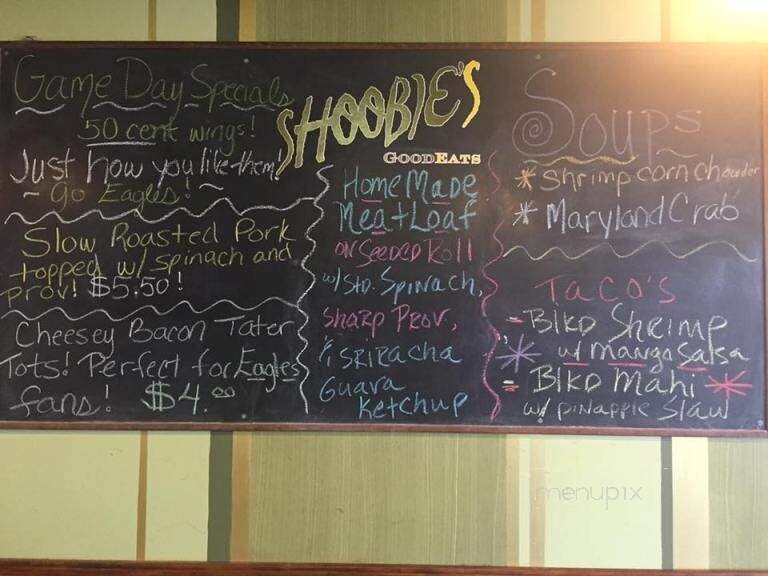 Game Day Specials
50 cent wings!
Just how you like them!
~ Go Eagles! ~
Slow Roasted Pork
topped w/ spinach and
prov! $5.50!
Cheesey Bacon Tater
Tots! Perfect for Eagles
fans! $4.00
SHOOBIE'S
GOODEATS
HomeMade
MeatLoaf
on Seeded Roll
w/ Sto. Spinach,
Sharp Prov,
& SRIRacha
Guava
Ketchup
Soups
* Shrimp corn chowder
* Maryland Crab
TaCO'S
- Blkd Shrimp
w/ mango Salsa
- Blkd Mahi
w/ pinapple Slaw
menupix